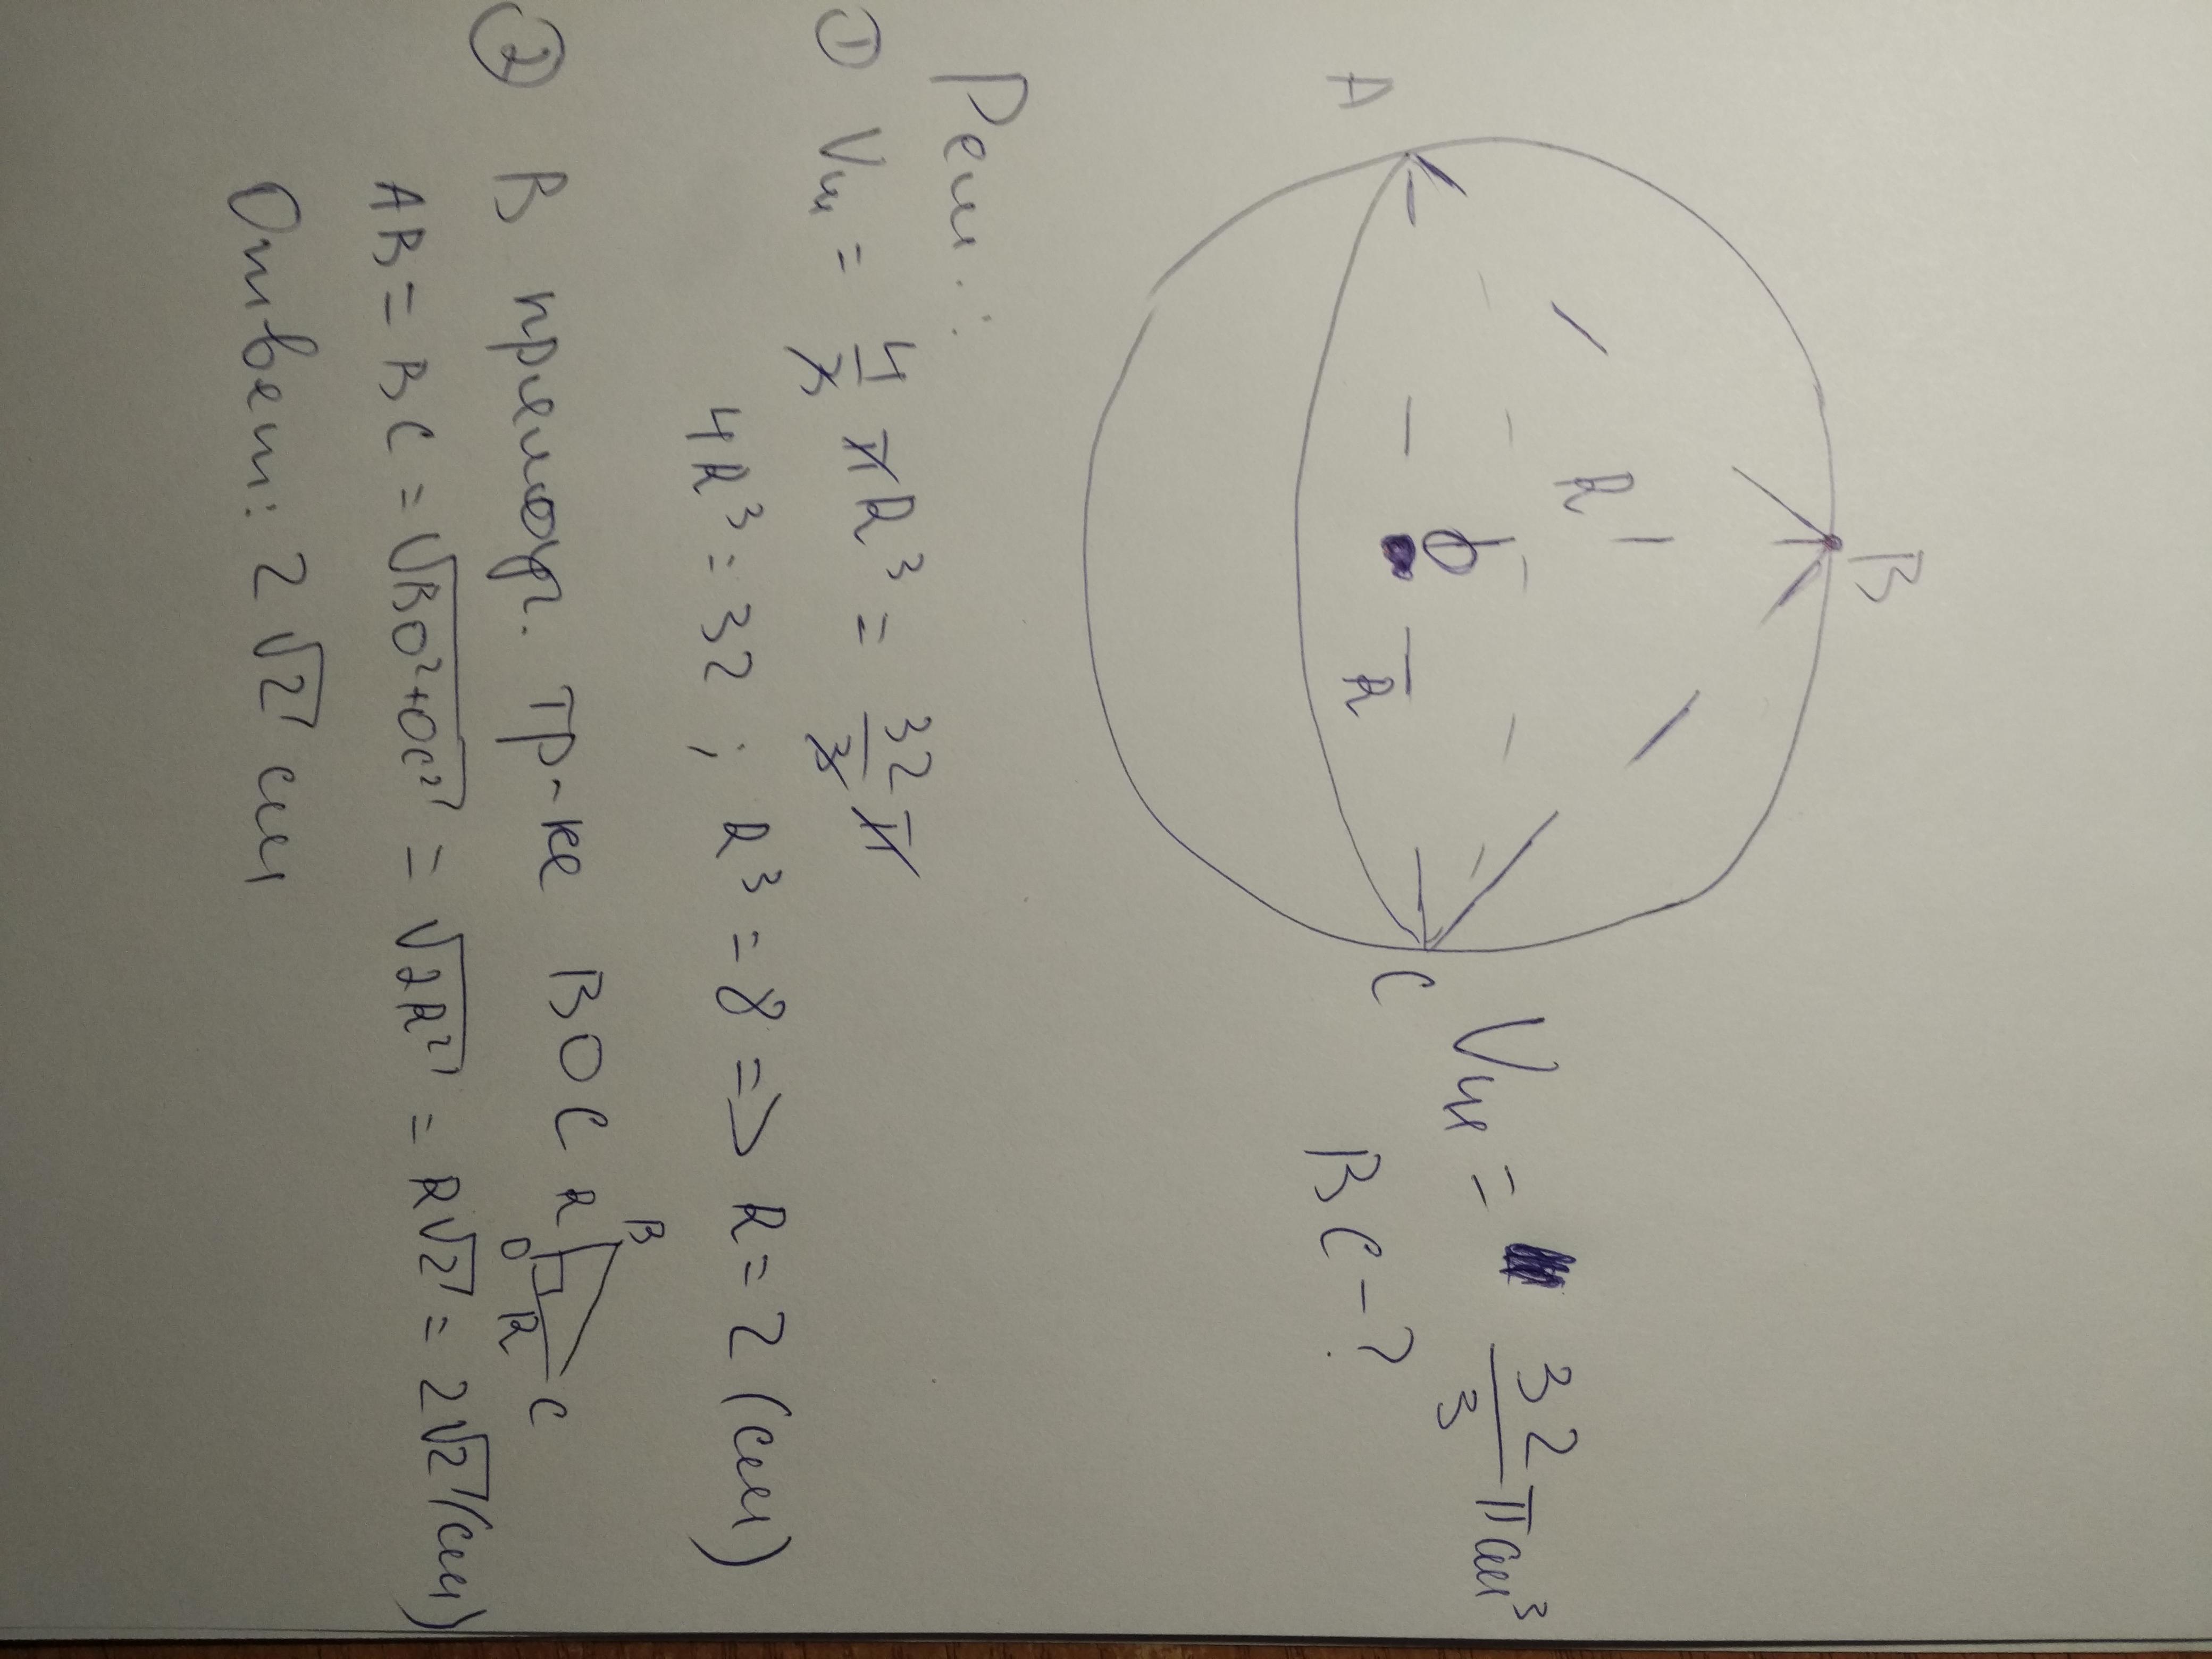 B
A
R
O
R
C
Vш = 32/3 π см³
BC - ?
Реш.:
① Vш = 4/3 πR³ = 32/3 π
4R³ = 32 ; R³ = 8 => R = 2 (см)
② В прямоуг. тр-ке BOC
B
R
O
R
C
AB = BC = √BO²+OC² = √2R² = R√2 = 2√2 (см)
Ответ: 2√2 см